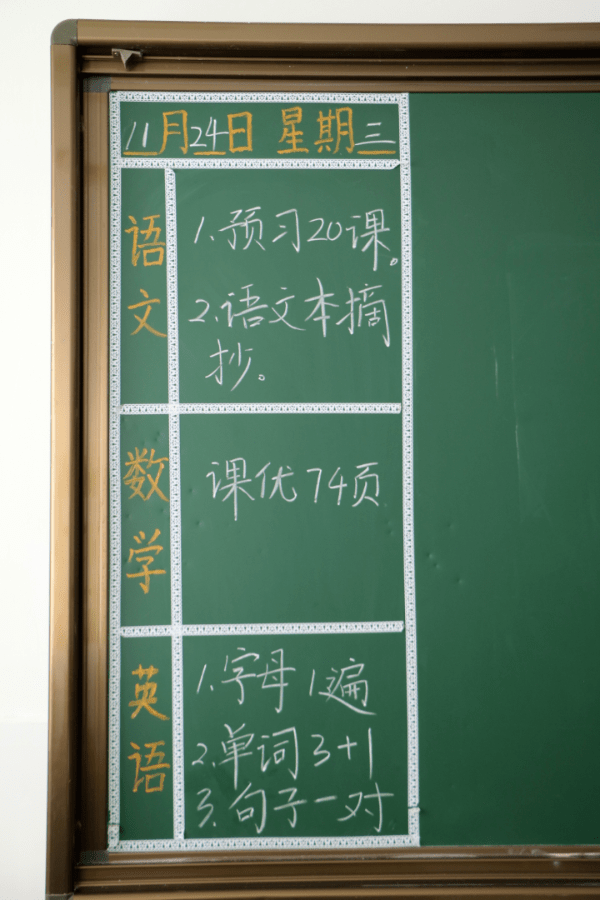 11月24日 星期三
语文
1.预习20课。
2.语文本摘
抄。
数学
课优74页
英语
1.字母1遍
2.单词3+1
3.句子一对